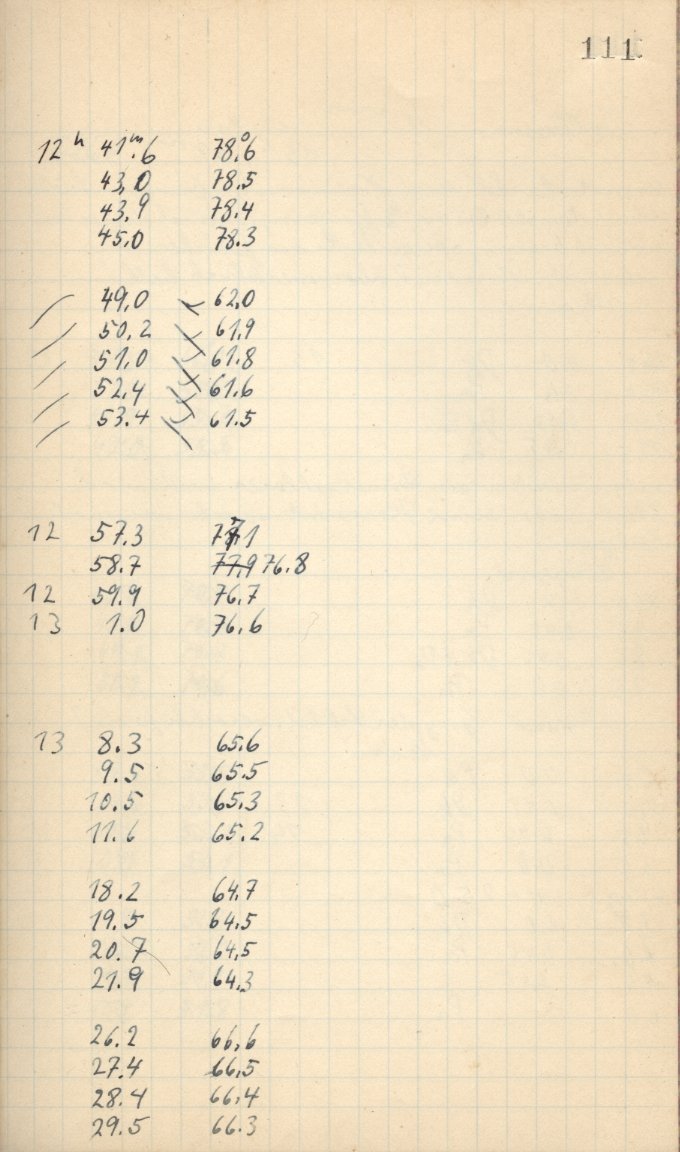 111
12ʰ 41ᵐ.6 78°.6
43,0 78.5
43,9 78.4
45,0 78.3
49,0 62,0
50,2 61,9
51,0 61.8
52,4 61.6
53.4 61.5
12 57.3 77,1
58.7 77,9 76.8
12 59.9 76,7
13 1.0 76,6
13 8.3 65.6
9.5 65.5
10.5 65.3
11.6 65.2
18.2 64.7
19.5 64.5
20.7 64,5
21.9 64.3
26.2 66,6
27.4 66,5
28.4 66,4
29.5 66.3